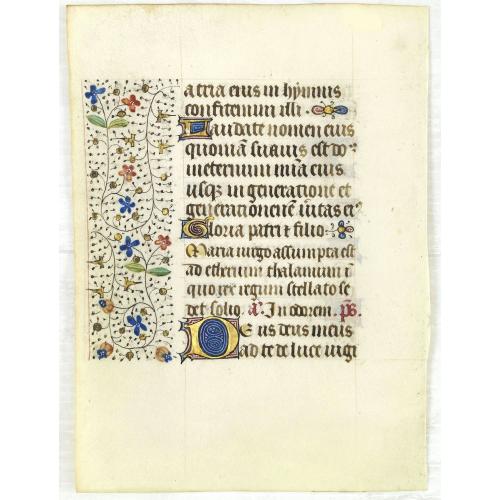 atria eius in hymnis
confitemini illi
Laudate nomen eius
quoniā suauis est do
ineternum mīa eius
usqꝫ in generatione et
generationē uītas ei
Gloria patri & filio
Maria uirgo assumpta est
ad ethereum thalamum ī
quo rex regum stellato se
det solio. a. In odorem. ps.
Deus deus meus
ad te de luce uigi